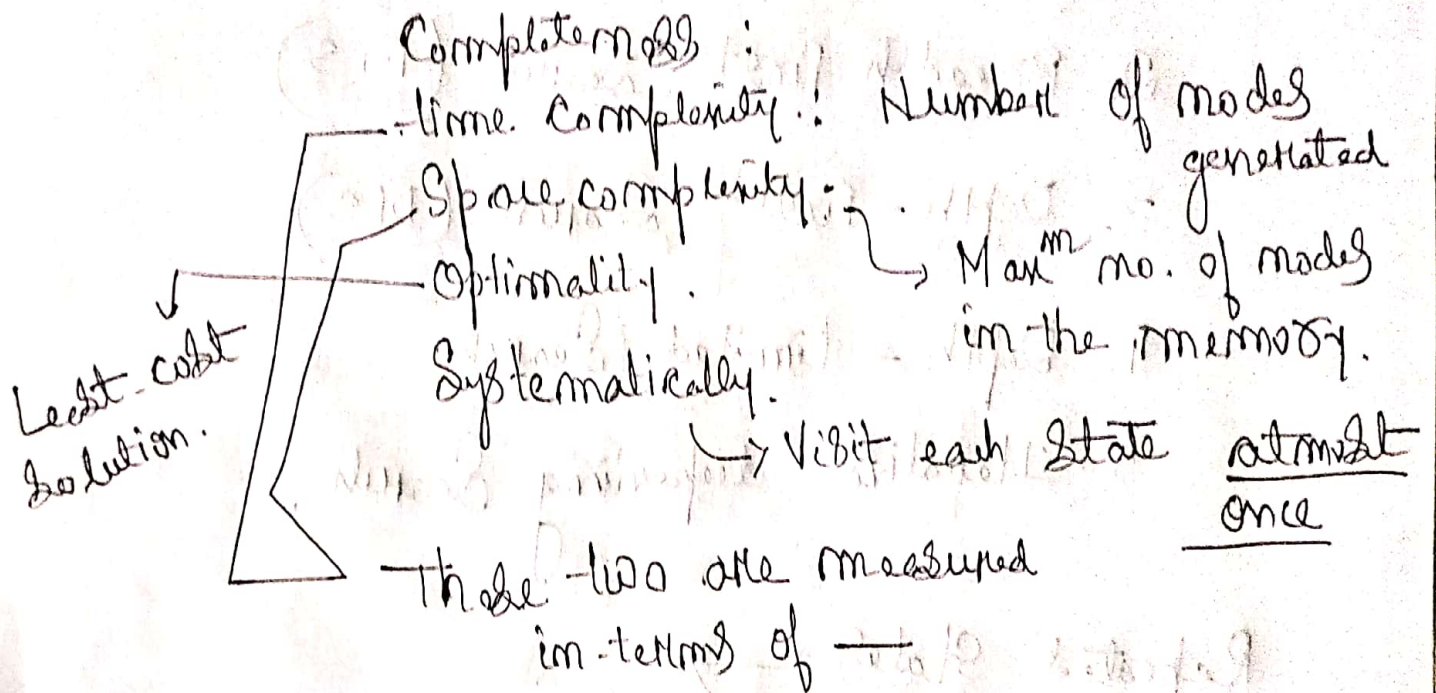 Completeness :
time complexity : Number of nodes
generated
Space complexity :
→ Maxᵐ no. of nodes
in the memory.
Optimality.
Least-cost
Solution.
Systematically.
→ Visit each state atmost
once
These two are measured
in terms of —